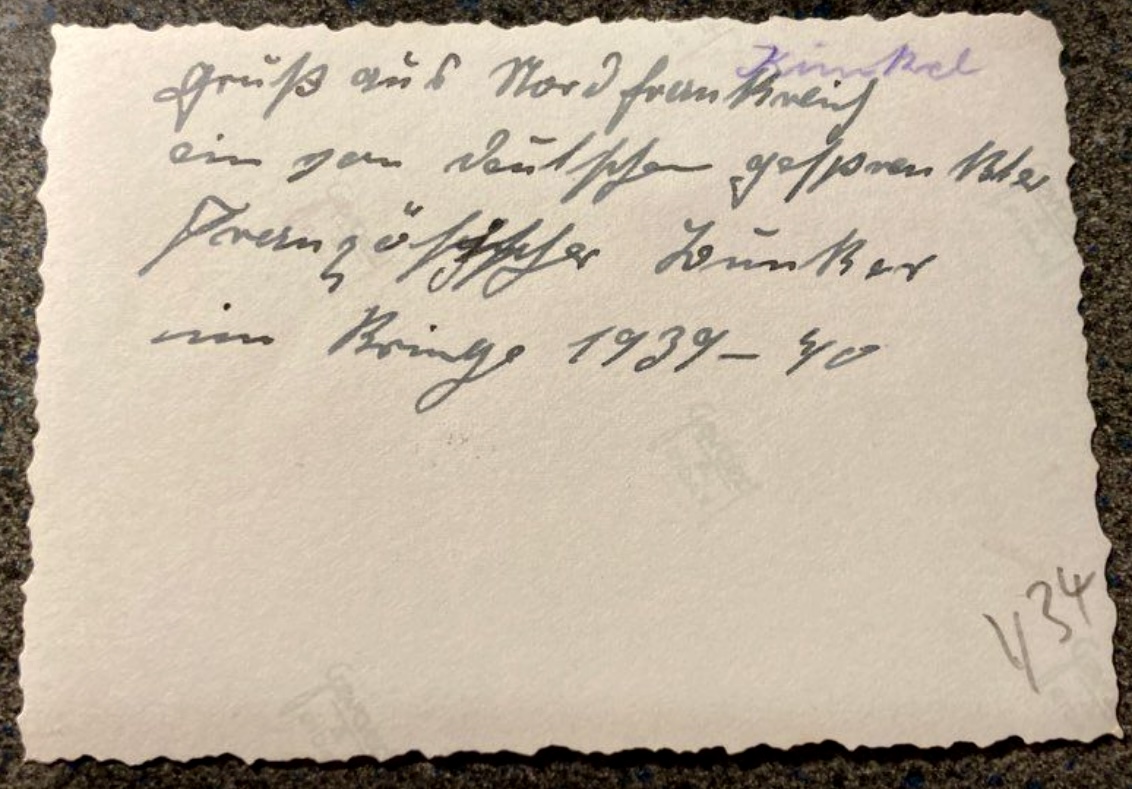 Kunkel
Gruß aus Nordfrankreich
ein von deutschen gesprenkter
Französischer Bunker
im Kriege 1939-40
434